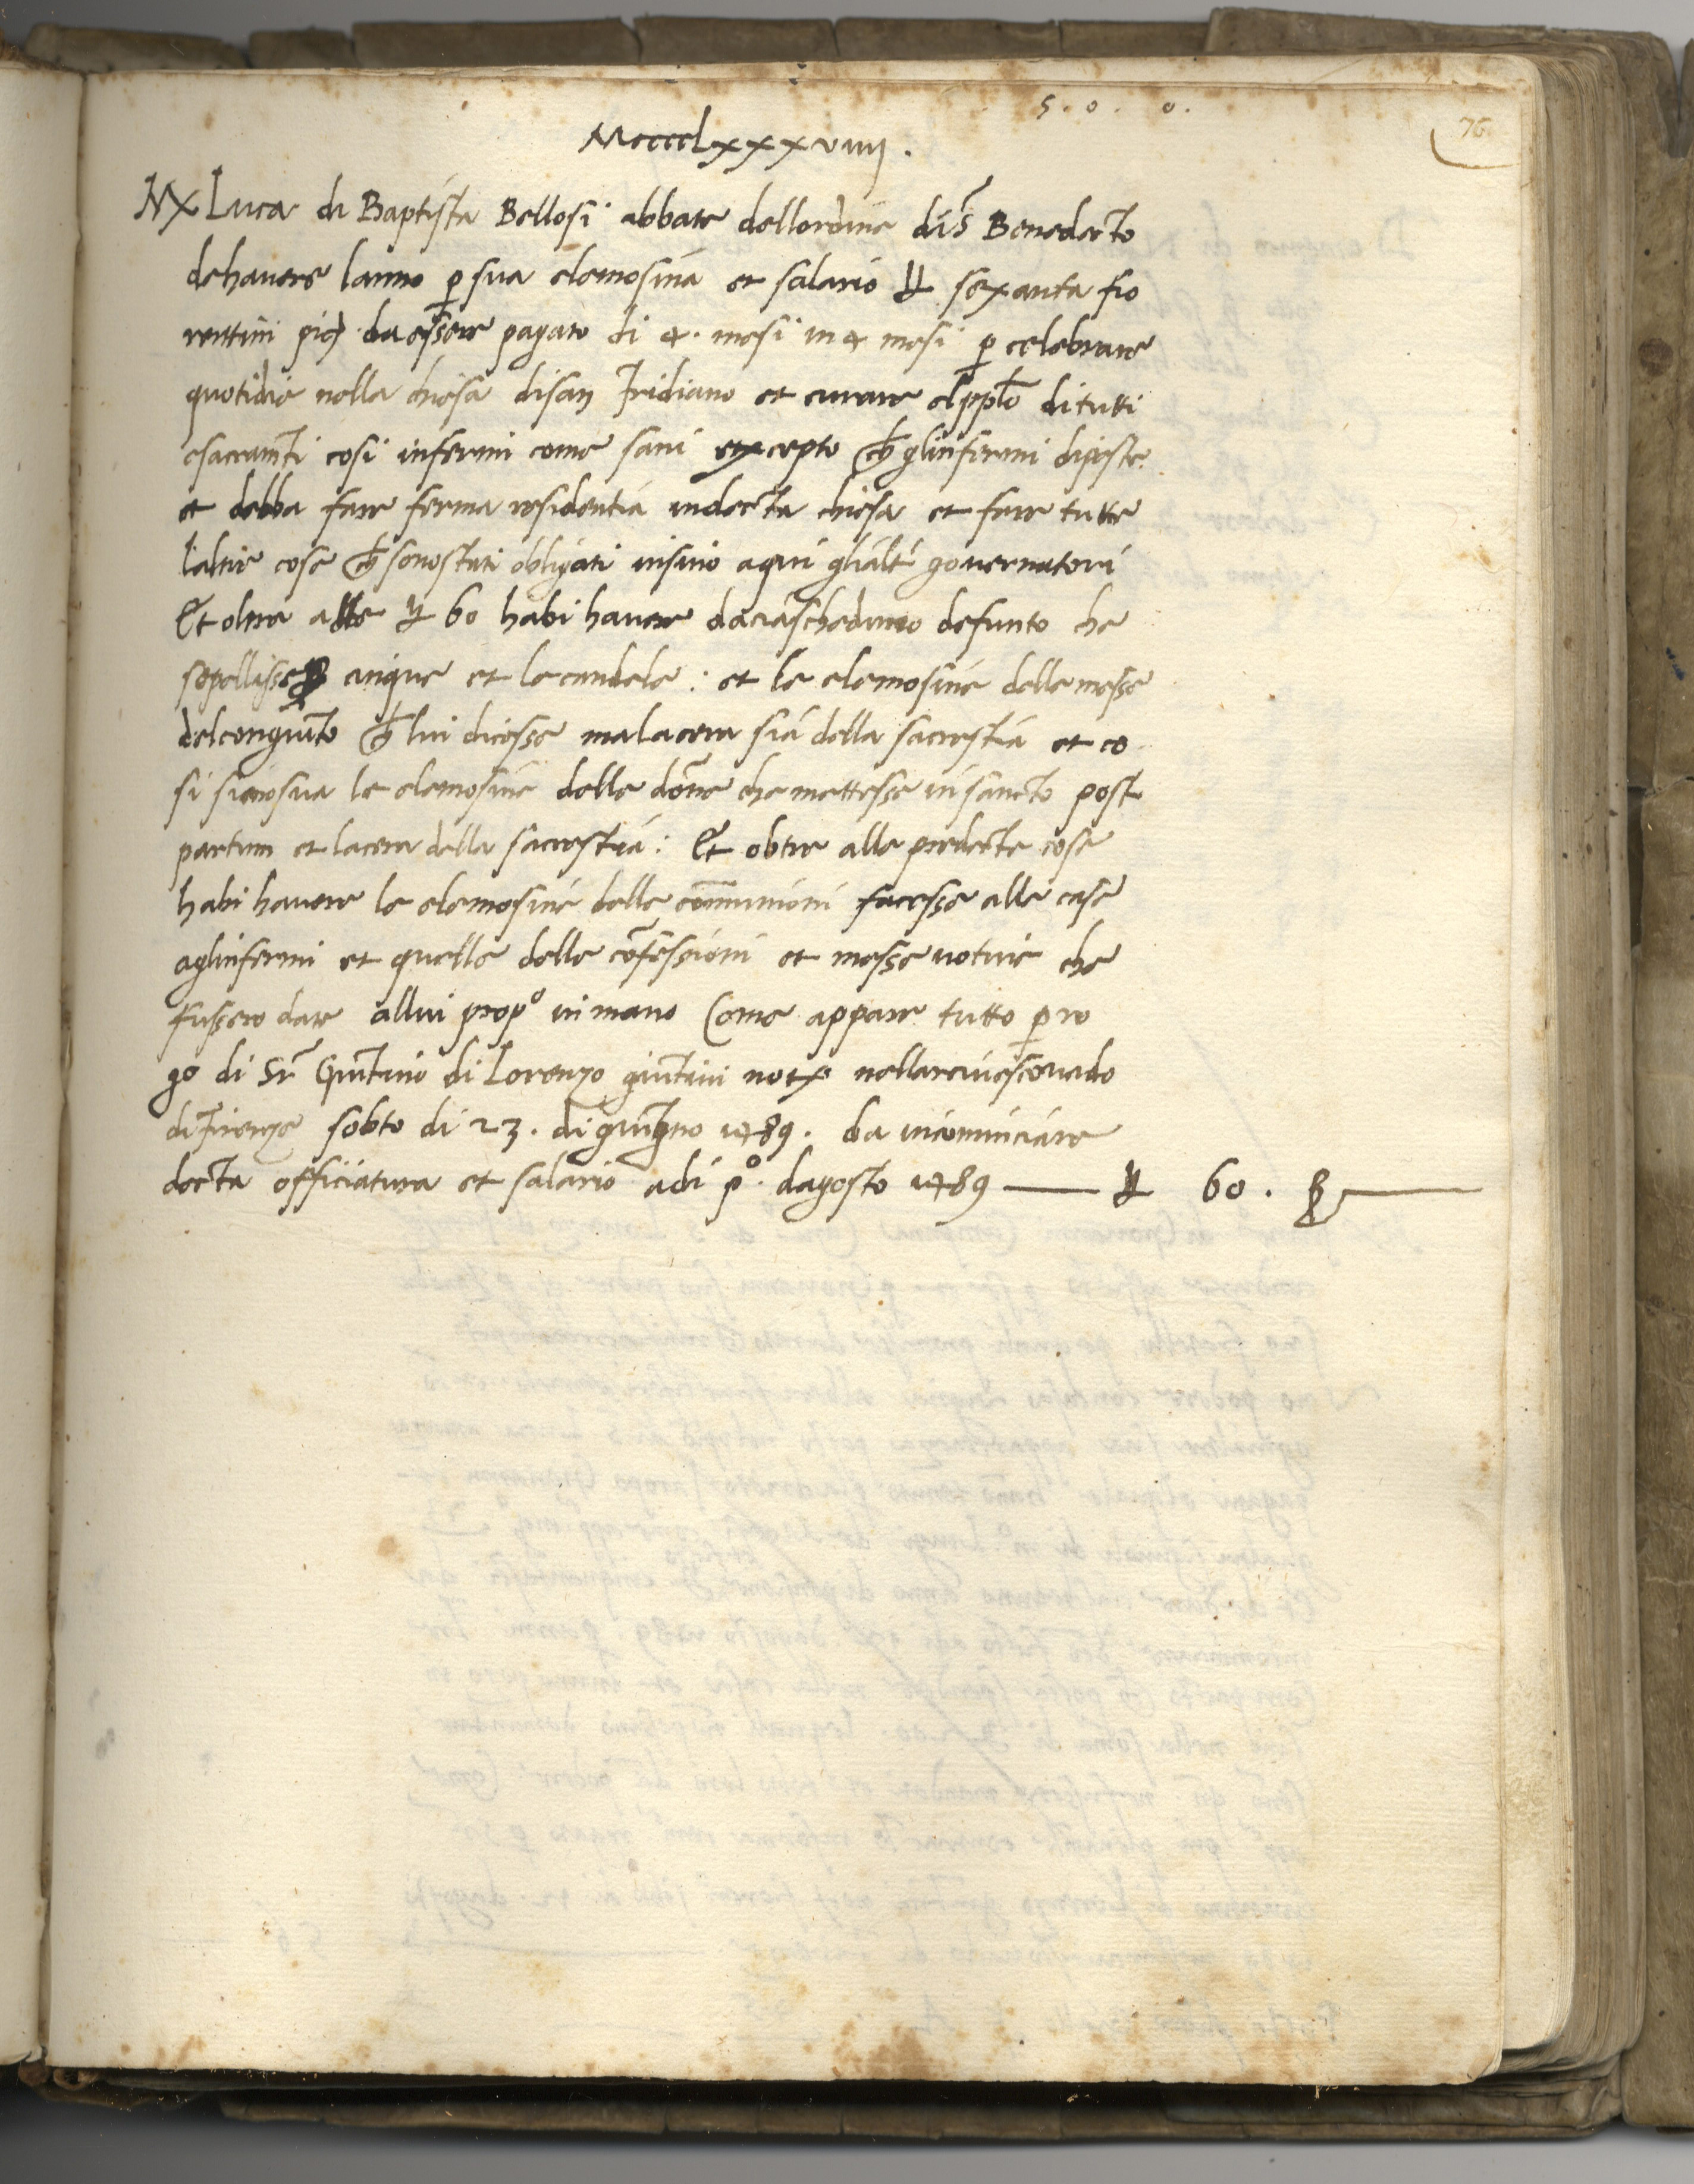 5 . 0 . 0 .
76
Mcccclxxxviiij .
Luca di Baptista Bellosi abbate dellordine di S Benedecto
de havere lanno p sua elemosina et salario sexanta fio
rentini picj . da essere pagato di 4 . mesi in 4 mesi p celebrare
quotidie nella chiesa disan Fridiano et curare elpplo di tutti
esacramti cosi infermi come sani excepto ch glinfermi dipeste
et debba fare ferma residentia indecta chiesa et fare tutte
laltre cose ch sonostati obligati insino aqui glialti governatori
Et oltra alle 60 habi havere daciascheduno defunto che
sepellisse cinque et le candele : et le elemosine delle messe
delcongiunto ch lui dicesse ma lacera sia della sacrestia et co
si sieno sua le elemosine delle done che mettesse insancto post
partum et lacera della sacrestia : Et oltre alle predecte cose
habi havere le elemosine delle comunioni facesse alle case
aglinfermi et quelle delle cofessioni et messe votive che
fussero date allui propo in mano Come appare tutto p ro
go di Sr Giuntino di Lorenzo giuntini noto nellarcivescovado
di Firenze sobto di 23 . di giungno 1489 . da incominciare
decta officiatura et salario adi po . dagosto 1489 — 60 .